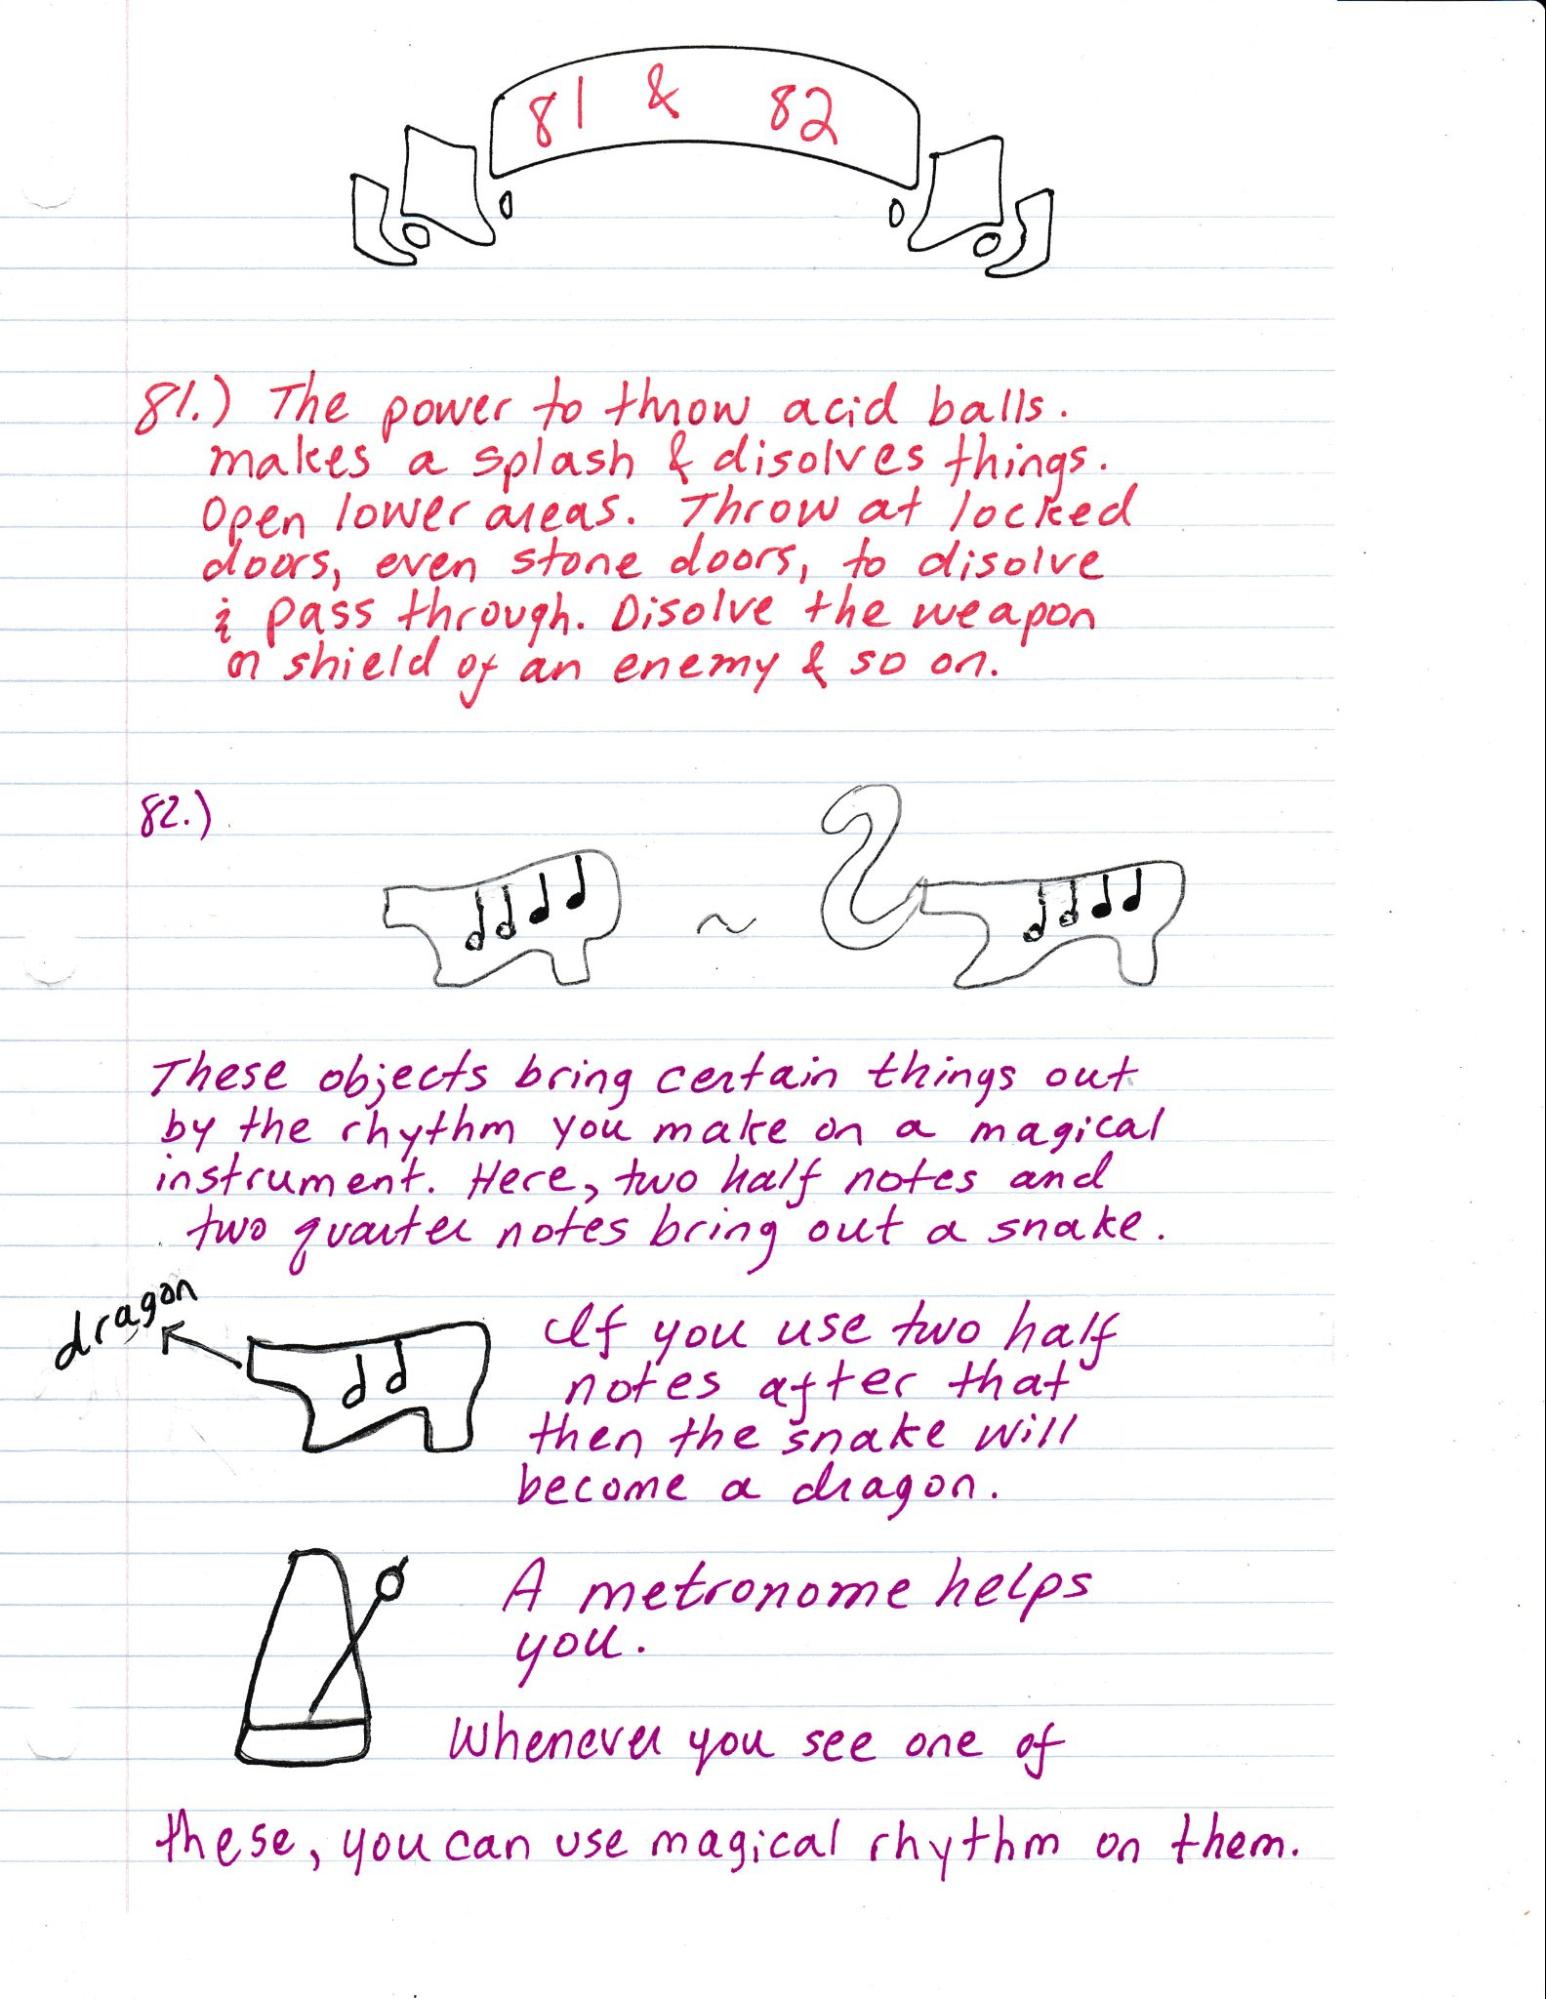 81 & 82
81.) The power to throw acid balls.
makes a splash & disolves things.
Open lower areas. Throw at locked
doors, even stone doors, to disolve
& pass through. Disolve the weapon
or shield of an enemy & so on.
82.)
~
These objects bring certain things out
by the rhythm you make on a magical
instrument. Here, two half notes and
two quarter notes bring out a snake.
dragon
If you use two half
notes after that
then the snake will
become a dragon.
A metronome helps
you.
Whenever you see one of
these, you can use magical rhythm on them.